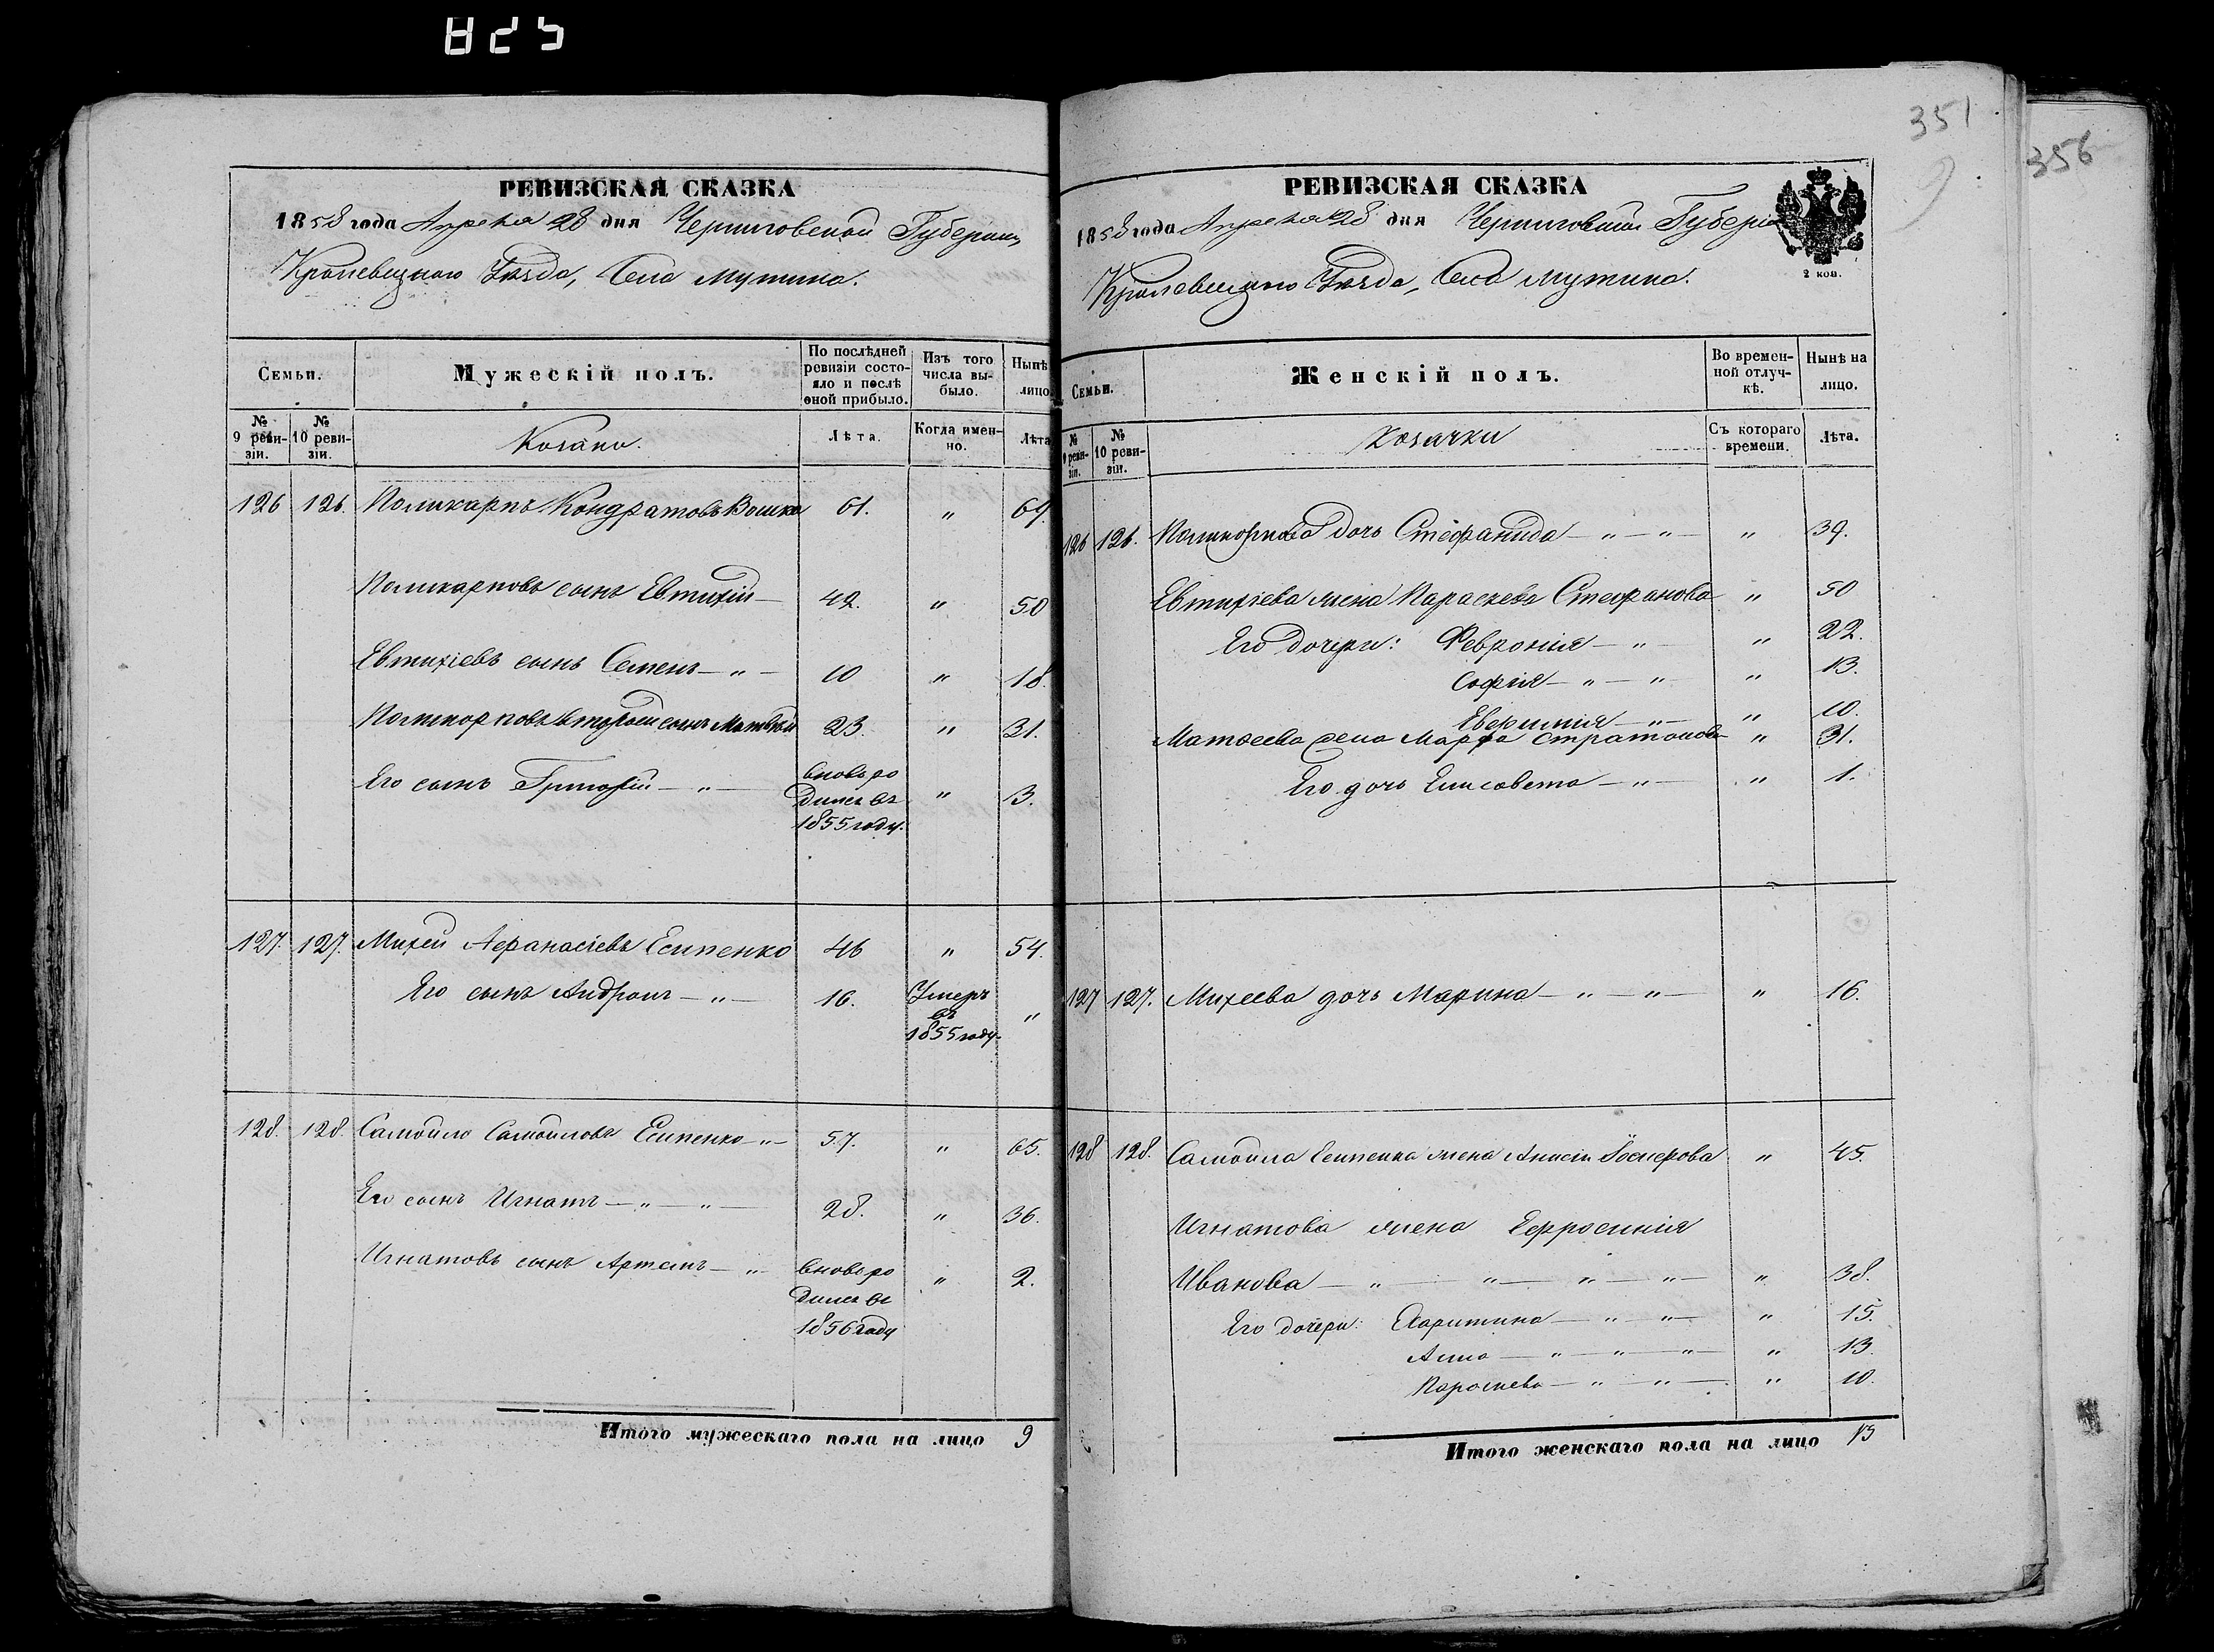 825
РЕВИЗСКАЯ СКАЗКА
1858 года Апреля 28 дня Черниговской Губернии
Кролевецкаго Уезда, Села Мутина.
Семьи.
Мужескій полъ.
По послѣдней ревизіи состояло и послѣ оной прибыло.
Изъ того числа выбыло.
Нынѣ
лицо
№ 9 ревизіи.
№ 10 ревизіи.
Козаки.
Лѣта.
Когда именно.
Лѣта
126 126. Поликарпъ Кондратовъ Вошка 61. " 69.
Поликарповъ сынъ Евтихій — 42. " 50
Евтихіевъ сынъ Семенъ — " — 10 " 18.
Поликарповъ второй сынъ Матвѣй 23. " 31.
Его сынъ Григорій — " — вновь ро
дился въ " 3.
1855 году.
127. 127. Михей Афанасіевъ Есипенко 46 " 54.
Его сынъ Андронъ — " — 16. Умеръ
въ "
1855 году.
128. 128. Самойло Самойловъ Есипенко — " — 57. " 65.
Его сынъ Игнатъ — " — " — 28. " 36.
Игнатовъ сынъ Артемъ — " вновь ро " 2.
дился въ
1856 году
Итого мужескаго пола на лицо 9
351
356
РЕВИЗСКАЯ СКАЗКА
1858 года Апреля 28 дня Черниговской Губерніи
Кролевецкаго Уезда, Села Мутина.
2 коп.
Семьи.
Женскій полъ.
Во временной отлучкѣ.
Нынѣ на лицо.
№ 9 ревизіи.
№ 10 ревизіи.
Козачки
Съ котораго времени.
Лѣта.
126 126. Поликарпова дочь Стефанида — " — " — " 39.
Евтихіева жена Параскева Стефанова " 50
Его дочери: Февронія — " — " 22.
Софія — " — " " 13.
Евфимія — " — " 10.
Матвеева жена Марфа Стратонова " 31.
Его дочь Елисавета — " — " 1.
127 127. Михеева дочь Марина — " — " — " 16.
128 128. Самойла Есипенка жена Анисія " 45.
Игнатова жена Ефросинія
Иванова — " — " — " — " — " 38.
Его дочери: Харитина — " — " — " 15.
Анна — " — " — " — " 13.
Параскева — " — " — " 10.
Итого женскаго пола на лицо 13